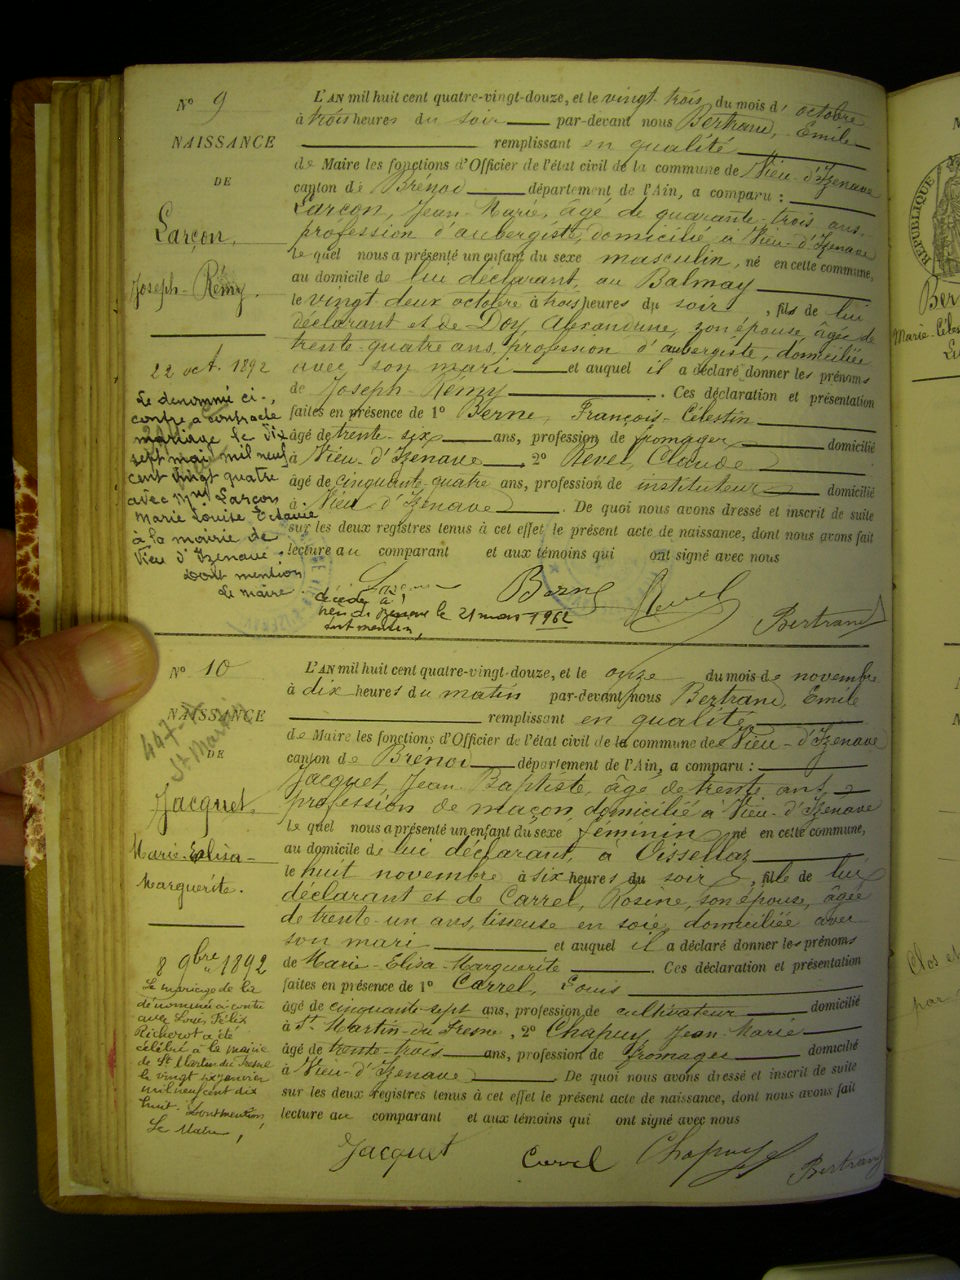 N° 9
NAISSANCE
DE
Larçon,
Joseph-Rémy.
22 oct. 1892
Le dénommé ci-
contre a contracté
mariage le dix
sept mai mil neuf
cent vingt quatre
avec Mlle Larçon
Marie Louise Octavie
à la mairie de
Vieu d'Izenave.
Dont mention
Le maire.
L'AN mil huit cent quatre-vingt-douze, et le vingt-trois du mois d'octobre
à trois heures du soir par-devant nous Bertrand, Emile
remplissant en qualité
de Maire les fonctions d'Officier de l'état civil de la commune de Vieu-d'Izenave
canton de Brénod département de l'Ain, a comparu :
Larçon, Jean-Marie, âgé de quarante-trois ans,
profession d'aubergiste, domicilié à Vieu-d'Izenave
le quel nous a présenté un enfant du sexe masculin, né en cette commune,
au domicile de lui déclarant, au Balmay
le vingt deux octobre à trois heures du soir, fils de lui
déclarant et de Doy, Alexandrine, son épouse, âgée de
trente-quatre ans, profession d'aubergiste, domiciliée
avec son mari et auquel il a déclaré donner les prénoms
de Joseph-Remy. Ces déclaration et présentation
faites en présence de 1° Berne, François-Célestin
âgé de trente-six ans, profession de fromager domicilié
à Vieu-d'Izenave, 2° Revel, Claude
âgé de cinquante-quatre ans, profession de instituteur domicilié
à Vieu d'Izenave. De quoi nous avons dressé et inscrit de suite
sur les deux registres tenus à cet effet le présent acte de naissance, dont nous avons fait
lecture au comparant et aux témoins qui ont signé avec nous
Larçon Berne Revel Bertrand
décédé à
Vieu d'Izenave le 21 mars 1962
dont mention,
N° 10
NAISSANCE
DE
St Martin
Jacquet
Marie-Elisa-
Marguerite.
8 9bre 1892
Le mariage de la
dénommée ci-contre
avec Louis, Félix
Richerot a été
célébré à la mairie
de St Martin du Fresne
le vingt six janvier
mil neuf cent dix
huit. Dont mention,
Le Maire,
L'AN mil huit cent quatre-vingt-douze, et le onze du mois de novembre
à dix heures du matin par-devant nous Bertrand, Emile
remplissant en qualité
de Maire les fonctions d'Officier de l'état civil de la commune de Vieu-d'Izenave
canton de Brénod département de l'Ain, a comparu :
Jacquet, Jean Baptiste, âgé de trente ans,
profession de maçon, domicilié à Vieu-d'Izenave
le quel nous a présenté un enfant du sexe féminin né en cette commune,
au domicile de lui déclarant, à Oissellaz
le huit novembre à six heures du soir, fille de lui
déclarant et de Carrel, Rosine, son épouse, âgée
de trente-un ans, tisseuse en soie, domiciliée avec
son mari et auquel il a déclaré donner les prénoms
de Marie-Elisa-Marguerite. Ces déclaration et présentation
faites en présence de 1° Carrel, Louis
âgé de cinquante-sept ans, profession de cultivateur domicilié
à St Martin-du Fresne, 2° Chapuy, Jean-Marie
âgé de trente-trois ans, profession de fromager domicilié
à Vieu-d'Izenave. De quoi nous avons dressé et inscrit de suite
sur les deux registres tenus à cet effet le présent acte de naissance, dont nous avons fait
lecture au comparant et aux témoins qui ont signé avec nous
Jacquet Carrel Chapuy Bertrand